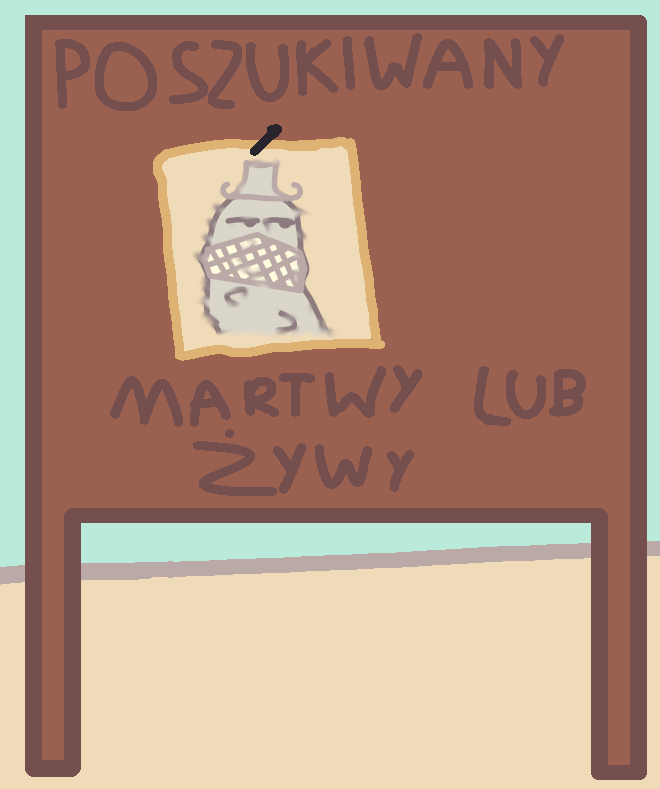 POSZUKIWANY
MARTWY LUB
ŻYWY